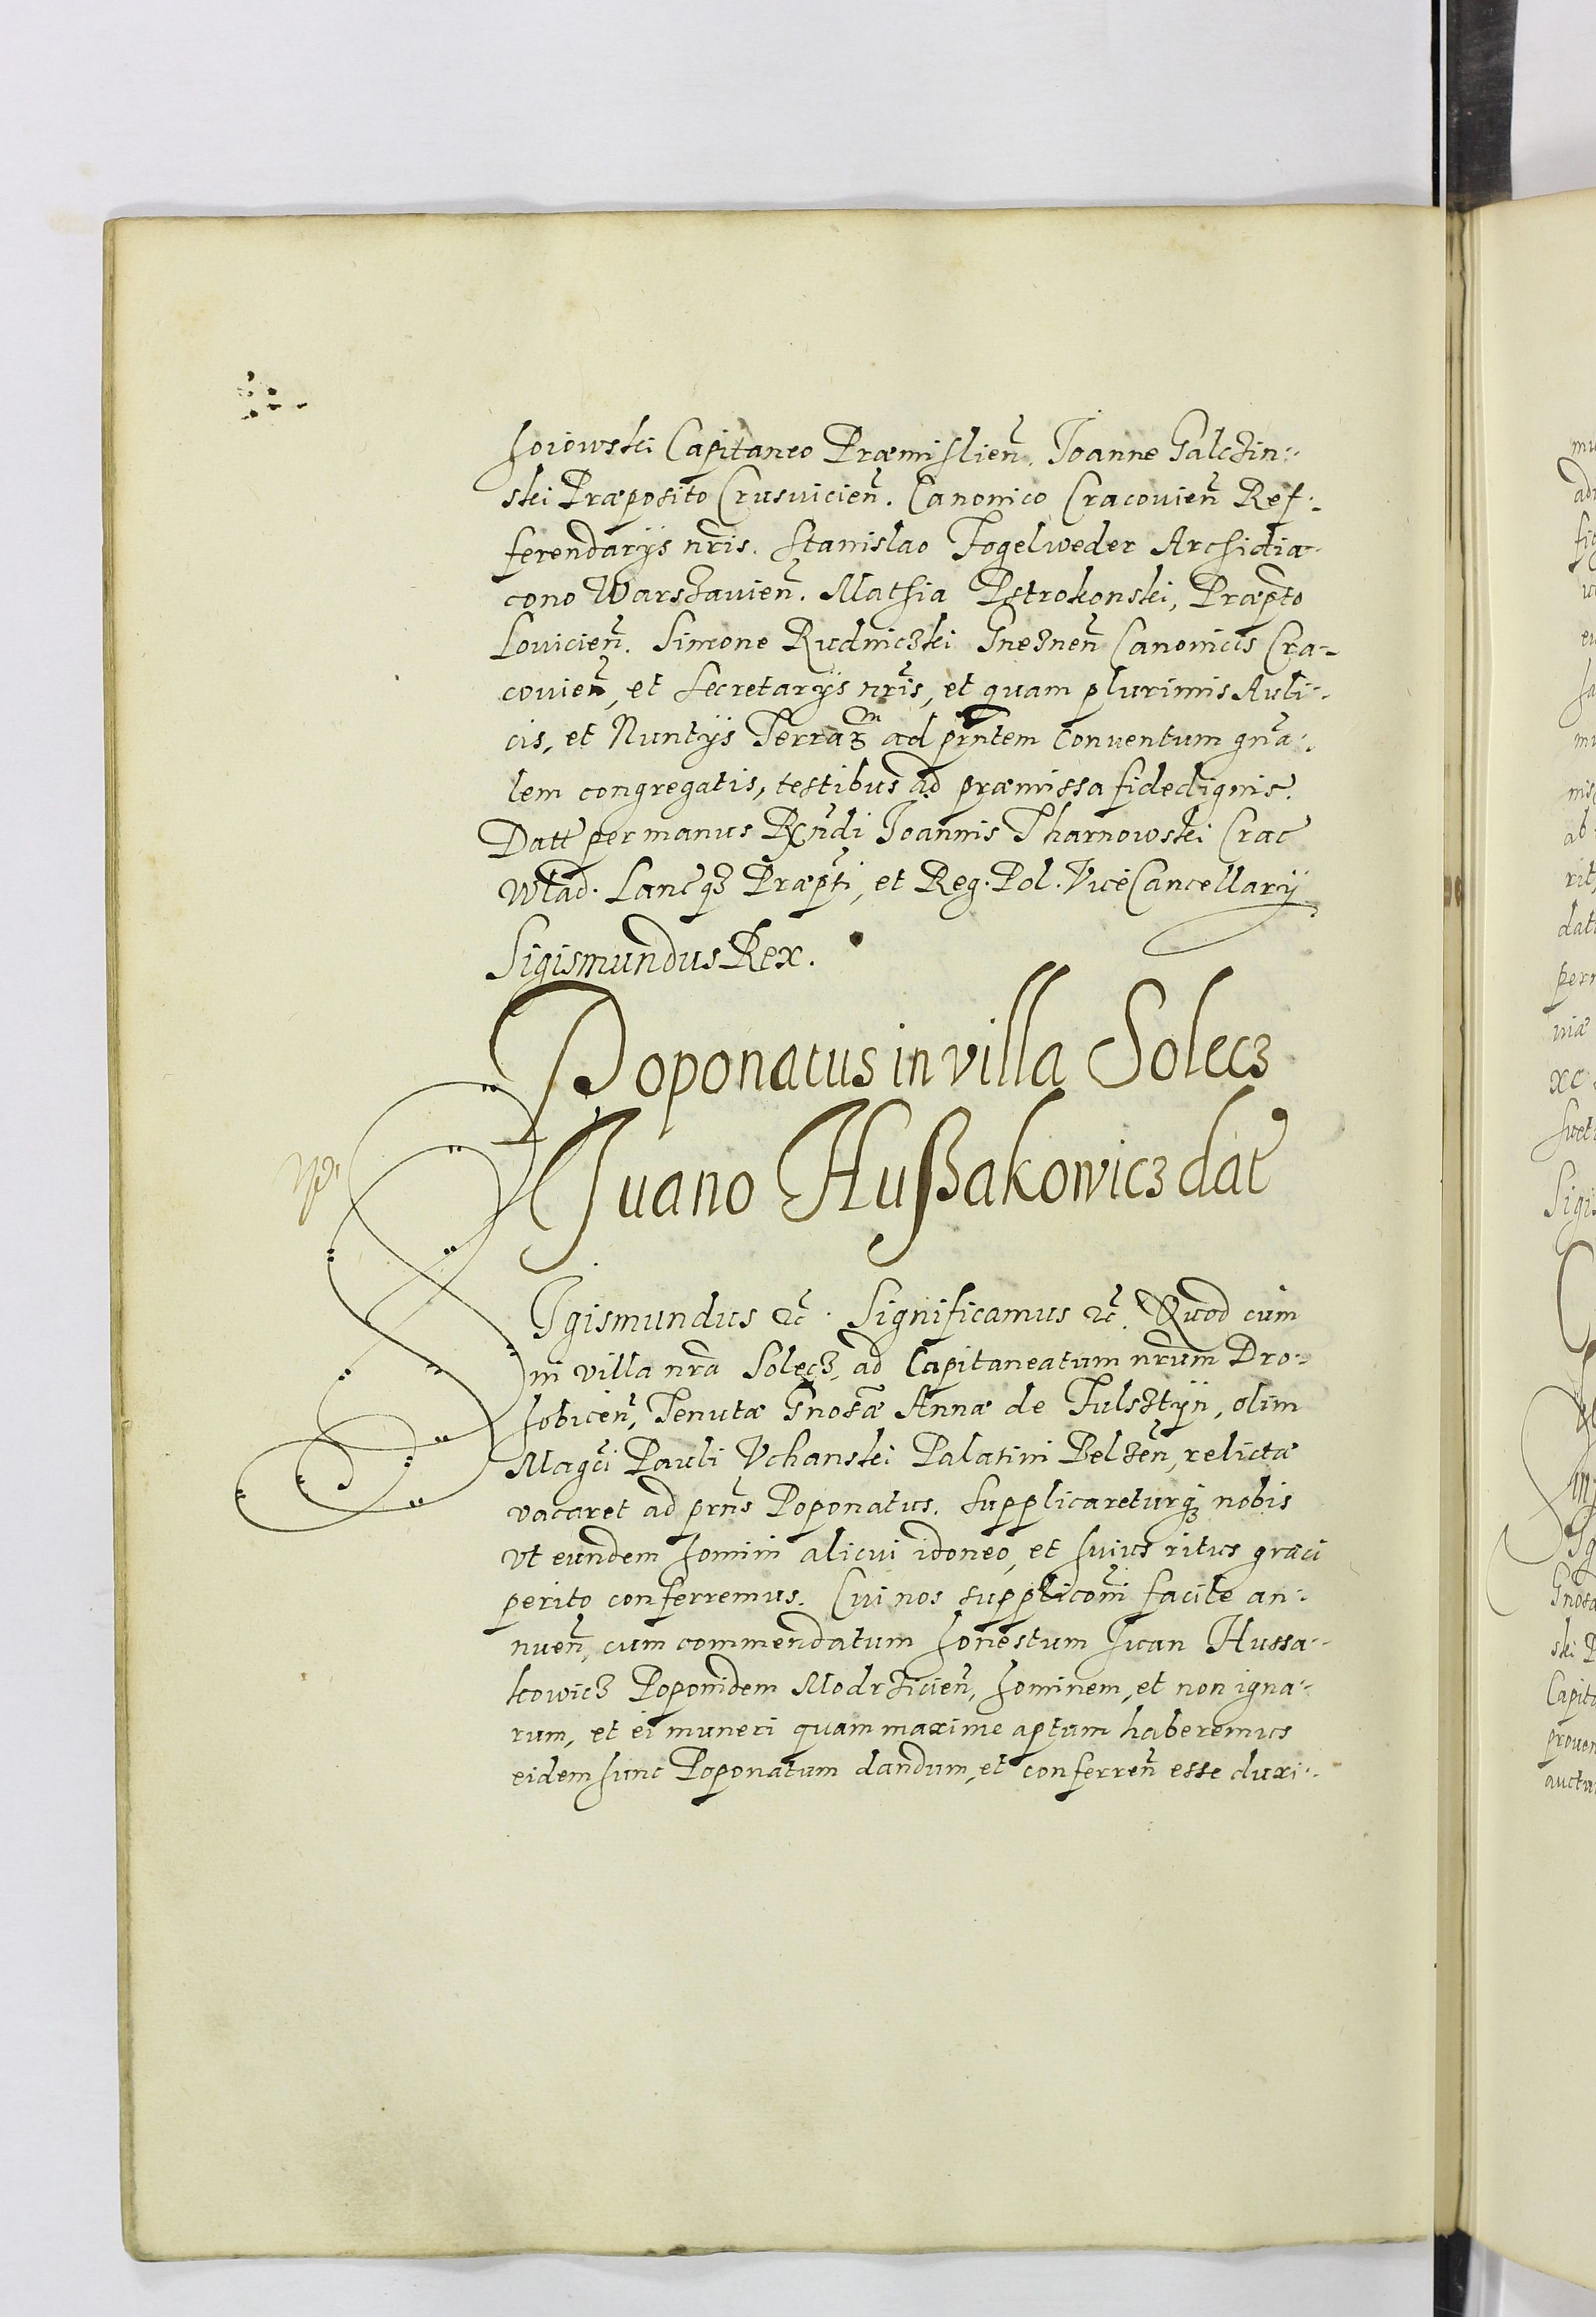 hoiowski Capitaneo Præmislien̄. Joanne Galczin-
ski Præposito Crusvicien̄. Canonico Cracovien̄ Ref-
ferendarÿs nr̄is. Stanislao Fogelweder Archidia-
cono Warszavien̄. Mathia Pstrokonski, Præpto
Lovicien̄. Simone Rudniczki Gneznen̄ Canonicis Cra-
covien̄, et Secretarÿs nr̄is, et quam plurimis Auli-
cis, et Nuntÿs Terraꝝ ad prn̄tem Conventum gn̄a-
lem congregatis, testibus ad præmissa fidedignis.
Datt per manus Rn̄di Joannis Tharnowski Crac̄
Wlad. Lanc̄ qꝫ Præpti, et Reg. Pol. ViceCancellarÿ
Sigismundus Rex.
Poponatus in villa Solecz
Iuano Hußakowicz dat̄
SIgismundus ꝛc̄. Significamus ꝛc̄. Quod cum
in villa nr̄a Solecz, ad Capitaneatum nr̄um Dro-
hobicen̄, Tenutæ Gnosæ Annæ de Fulsztÿn, olim
Magc̄i Pauli Vchanski Palatini Belzen̄, relictæ
vacaret ad prn̄s Poponatus. Supplicareturqꝫ nobis
vt eundem homini alicui idoneo, et huius ritus græci
perito conferremus. Cui nos supplicōni facile an-
nuen̄, cum commendatum honestum Iuan Hussa-
kowicz Poponidem Modrzicien̄, hominem, et non igna-
rum, et ei muneri quam maxime aptum haberemus
eidem hunc Poponatum dandum, et conferren̄ esse duxi-